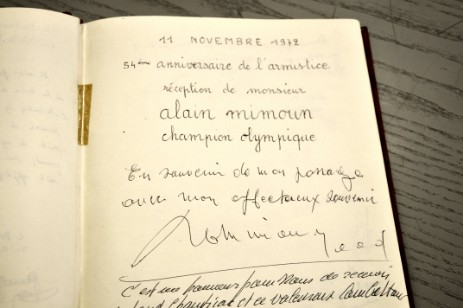 11 NOVEMBRE 1972
54ème anniversaire de l'armistice
réception de monsieur
alain mimoun
champion olympique
En souvenir de mon passage
avec mon affectueux souvenir
C'est un honneur pour nous de recevoir